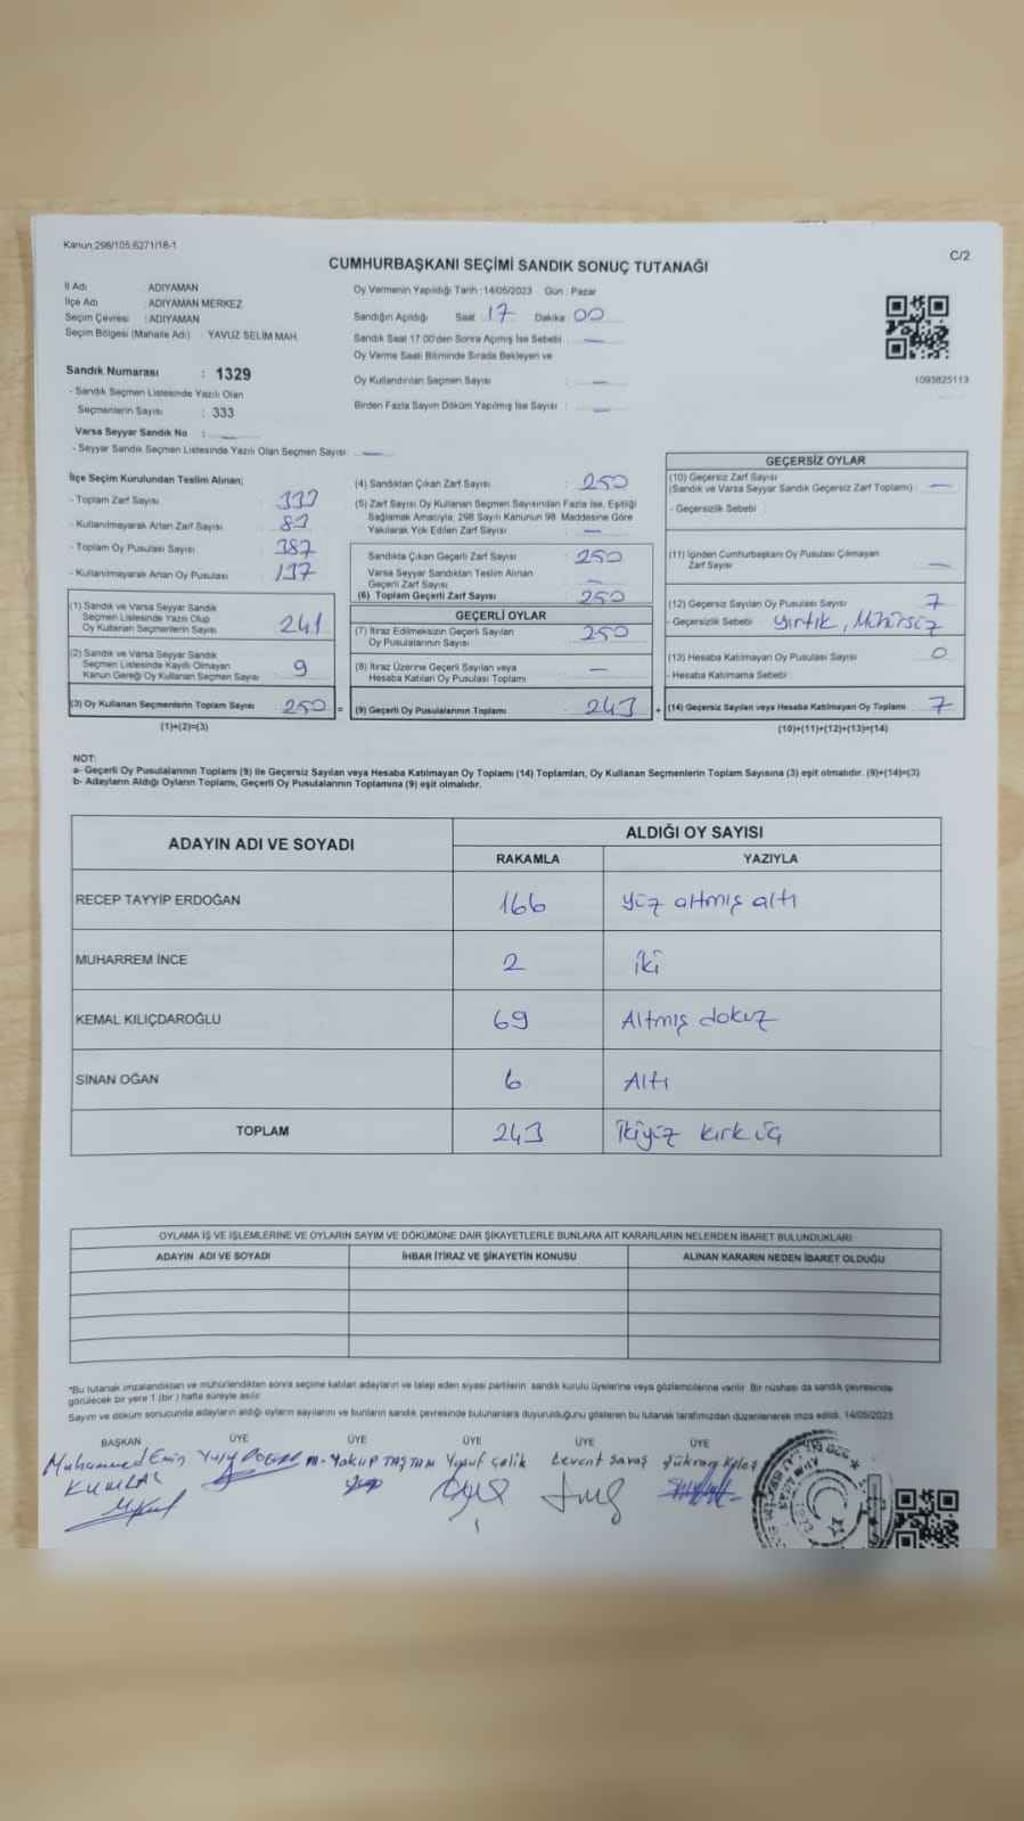 Kanun 298/105,6271/18-1
C/2
CUMHURBAŞKANI SEÇİMİ SANDIK SONUÇ TUTANAĞI
İl Adı ADIYAMAN
İlçe Adı ADIYAMAN MERKEZ
Seçim Çevresi : ADIYAMAN
Seçim Bölgesi (Mahalle Adı) YAVUZ SELİM MAH.
Sandık Numarası : 1329
- Sandık Seçmen Listesinde Yazılı Olan
Seçmenlerin Sayısı : 333
Varsa Seyyar Sandık No : —
- Seyyar Sandık Seçmen Listesinde Yazılı Olan Seçmen Sayısı —
Oy Vermenin Yapıldığı Tarih : 14/05/2023 Gün : Pazar
Sandığın Açıldığı Saat 17 Dakika 00
Sandık Saat 17.00'den Sonra Açılmış İse Sebebi —
Oy Verme Saati Bitiminde Sırada Bekleyen ve
Oy Kullandırılan Seçmen Sayısı : —
Birden Fazla Sayım Döküm Yapılmış İse Sayısı : —
1093825113
İlçe Seçim Kurulundan Teslim Alınan;
- Toplam Zarf Sayısı
- Kullanılmayarak Artan Zarf Sayısı
- Toplam Oy Pusulası Sayısı 387
- Kullanılmayarak Artan Oy Pusulası 137
(1) Sandık ve Varsa Seyyar Sandık
Seçmen Listesinde Yazılı Olup
Oy Kullanan Seçmenlerin Sayısı 241
(2) Sandık ve Varsa Seyyar Sandık
Seçmen Listesinde Kayıtlı Olmayan
Kanun Gereği Oy Kullanan Seçmen Sayısı 9
(3) Oy Kullanan Seçmenlerin Toplam Sayısı 250 =
(1)+(2)=(3)
(4) Sandıktan Çıkan Zarf Sayısı : 250
(5) Zarf Sayısı Oy Kullanan Seçmen Sayısından Fazla İse, Eşitliği
Sağlamak Amacıyla, 298 Sayılı Kanunun 98. Maddesine Göre
Yakılarak Yok Edilen Zarf Sayısı : —
Sandıkta Çıkan Geçerli Zarf Sayısı : 250
Varsa Seyyar Sandıktan Teslim Alınan
Geçerli Zarf Sayısı —
(6) Toplam Geçerli Zarf Sayısı : 250
GEÇERLİ OYLAR
(7) İtiraz Edilmeksizin Geçerli Sayılan
Oy Pusulalarının Sayısı : 250
(8) İtiraz Üzerine Geçerli Sayılan veya
Hesaba Katılan Oy Pusulası Toplamı —
(9) Geçerli Oy Pusulalarının Toplamı : 243 +
GEÇERSİZ OYLAR
(10) Geçersiz Zarf Sayısı
(Sandık ve Varsa Seyyar Sandık Geçersiz Zarf Toplamı) —
- Geçersizlik Sebebi
(11) İçinden Cumhurbaşkanı Oy Pusulası Çıkmayan
Zarf Sayısı —
(12) Geçersiz Sayılan Oy Pusulası Sayısı 7
- Geçersizlik Sebebi Yırtık, Mühürsüz
(13) Hesaba Katılmayan Oy Pusulası Sayısı 0
- Hesaba Katılmama Sebebi
(14) Geçersiz Sayılan veya Hesaba Katılmayan Oy Toplamı 7
(10)+(11)+(12)+(13)=(14)
NOT:
a- Geçerli Oy Pusulalarının Toplamı (9) ile Geçersiz Sayılan veya Hesaba Katılmayan Oy Toplamı (14) Toplamları, Oy Kullanan Seçmenlerin Toplam Sayısına (3) eşit olmalıdır. (9)+(14)=(3)
b- Adayların Aldığı Oyların Toplamı, Geçerli Oy Pusulalarının Toplamına (9) eşit olmalıdır.
ADAYIN ADI VE SOYADI ALDIĞI OY SAYISI
RAKAMLA YAZIYLA
RECEP TAYYİP ERDOĞAN 166 yüz altmış altı
MUHARREM İNCE 2 iki
KEMAL KILIÇDAROĞLU 69 Altmış dokuz
SİNAN OĞAN 6 Altı
TOPLAM 243 ikiyüz kırk üç
OYLAMA İŞ VE İŞLEMLERİNE VE OYLARIN SAYIM VE DÖKÜMÜNE DAİR ŞİKAYETLERLE BUNLARA AİT KARARLARIN NELERDEN İBARET BULUNDUKLARI
ADAYIN ADI VE SOYADI İHBAR İTİRAZ VE ŞİKAYETİN KONUSU ALINAN KARARIN NEDEN İBARET OLDUĞU
*Bu tutanak imzalandıktan ve mühürlendikten sonra seçime katılan adayların ve talep eden siyasi partilerin sandık kurulu üyelerine veya gözlemcilerine verilir. Bir nüshası da sandık çevresinde
görülecek bir yere 1 (bir) hafta süreyle asılır.
Sayım ve döküm sonucunda adayların aldığı oyların sayılarını ve bunların sandık çevresinde bulunanlara duyurulduğunu gösteren bu tutanak tarafımızdan düzenlenerek imza edildi. 14/05/2023
BAŞKAN ÜYE ÜYE ÜYE ÜYE ÜYE
Muhammed Emin M. Yakup TAŞTAN Yusuf Çelik Levent Savaş Şükran